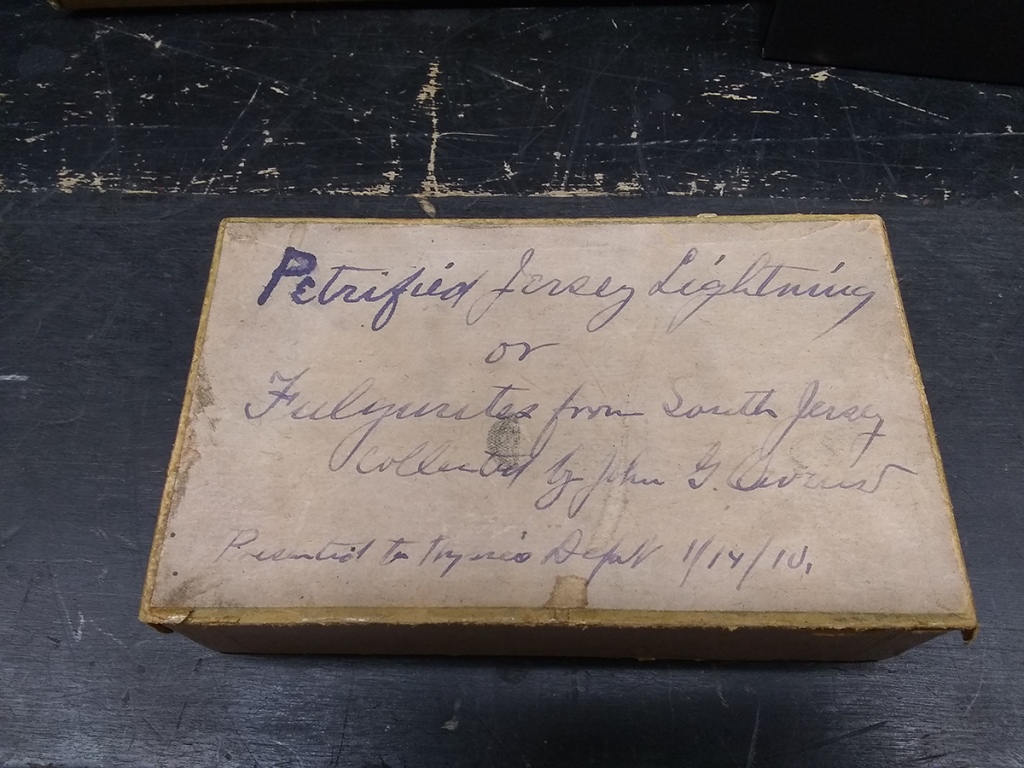 Petrified Jersey Lightning
or
Fulgurites from South Jersey
collected by John G.
Presented to Physics Dept 1/14/10.